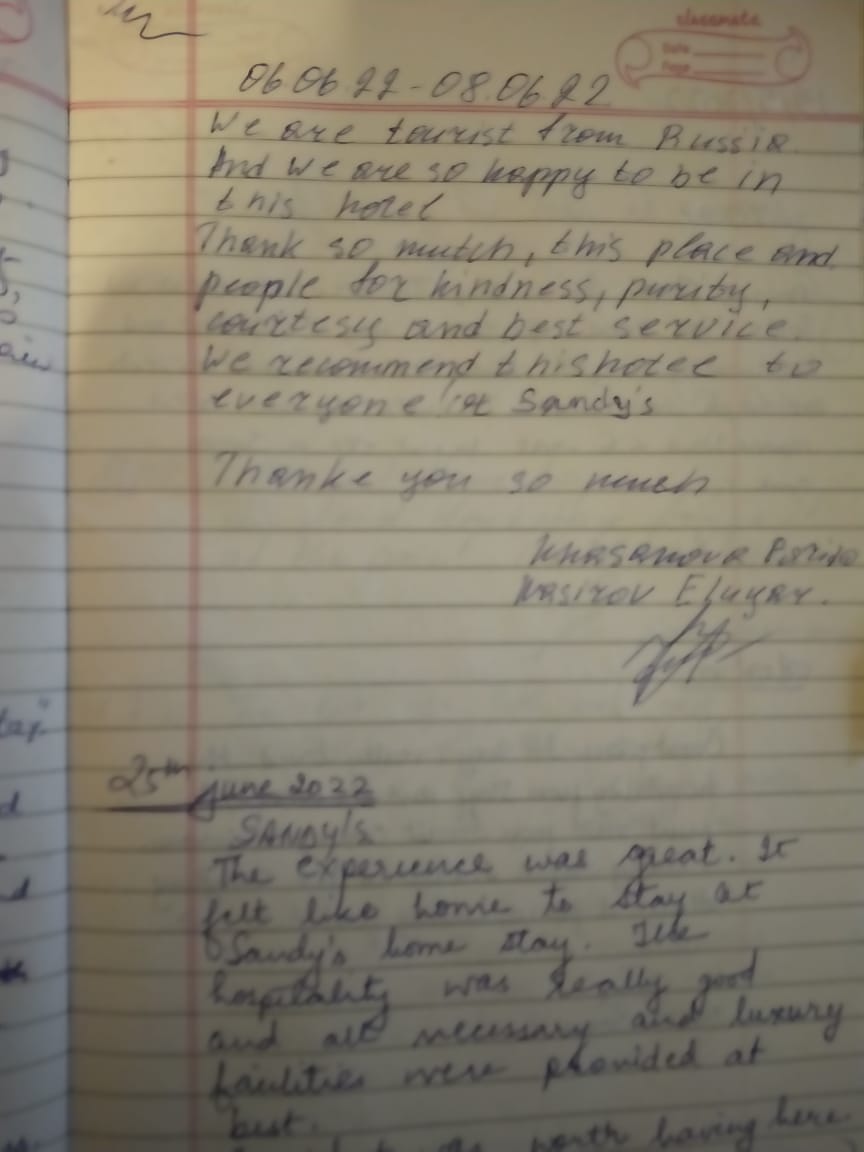 classmate
Date
Page
06.06.22-08.06.22
We are tourist from Russia.
And we are so happy to be in
this hotel
Thank so mutch, this place and
people for kindness, purity,
courtesy and best service.
We recommend this hotel to
everyone Sandy's
Thanke you so much
Khasanova
Nasirov Elnyar.
25th June 2022
SANDY'S
The experience was great. It
felt like home to stay at
Sandy's home stay. The
hospitality was really good
and all necessary and luxury
facilities were provided at
best.
worth having here